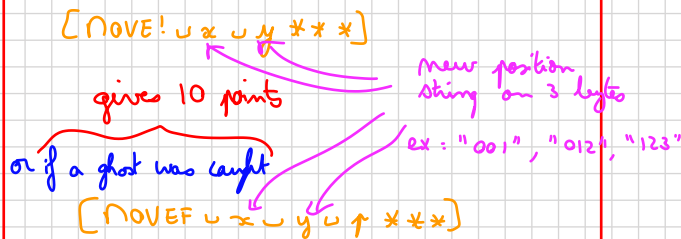 [MOVE! ␣ x ␣ y ***]
new position
string on 3 bytes
gives 10 points
ex : "001", "012", "123"
or if a ghost was caught
[MOVEF ␣ x ␣ y ␣ p ***]